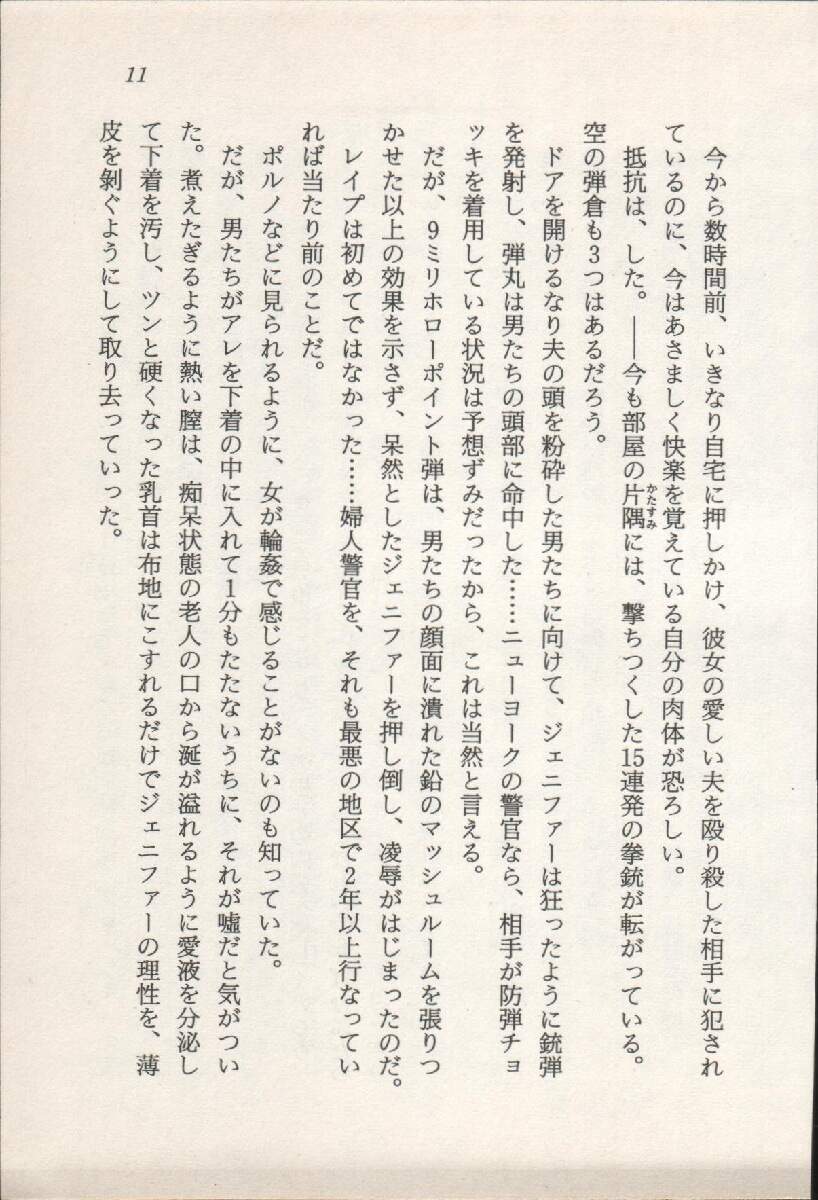 11
今から数時間前、いきなり自宅に押しかけ、彼女の愛しい夫を殴り殺した相手に犯され
ているのに、今はあさましく快楽を覚えている自分の肉体が恐ろしい。
抵抗は、した。――今も部屋の片隅には、撃ちつくした15連発の拳銃が転がっている。
かたすみ
空の弾倉も3つはあるだろう。
ドアを開けるなり夫の頭を粉砕した男たちに向けて、ジェニファーは狂ったように銃弾
を発射し、弾丸は男たちの頭部に命中した……ニューヨークの警官なら、相手が防弾チョ
ッキを着用している状況は予想ずみだったから、これは当然と言える。
だが、9ミリホローポイント弾は、男たちの顔面に潰れた鉛のマッシュルームを張りつ
かせた以上の効果を示さず、呆然としたジェニファーを押し倒し、凌辱がはじまったのだ。
レイプは初めてではなかった……婦人警官を、それも最悪の地区で2年以上行なってい
れば当たり前のことだ。
ポルノなどに見られるように、女が輪姦で感じることがないのも知っていた。
だが、男たちがアレを下着の中に入れて1分もたたないうちに、それが嘘だと気がつい
た。煮えたぎるように熱い膣は、痴呆状態の老人の口から涎が溢れるように愛液を分泌し
て下着を汚し、ツンと硬くなった乳首は布地にこすれるだけでジェニファーの理性を、薄
皮を剝ぐようにして取り去っていった。